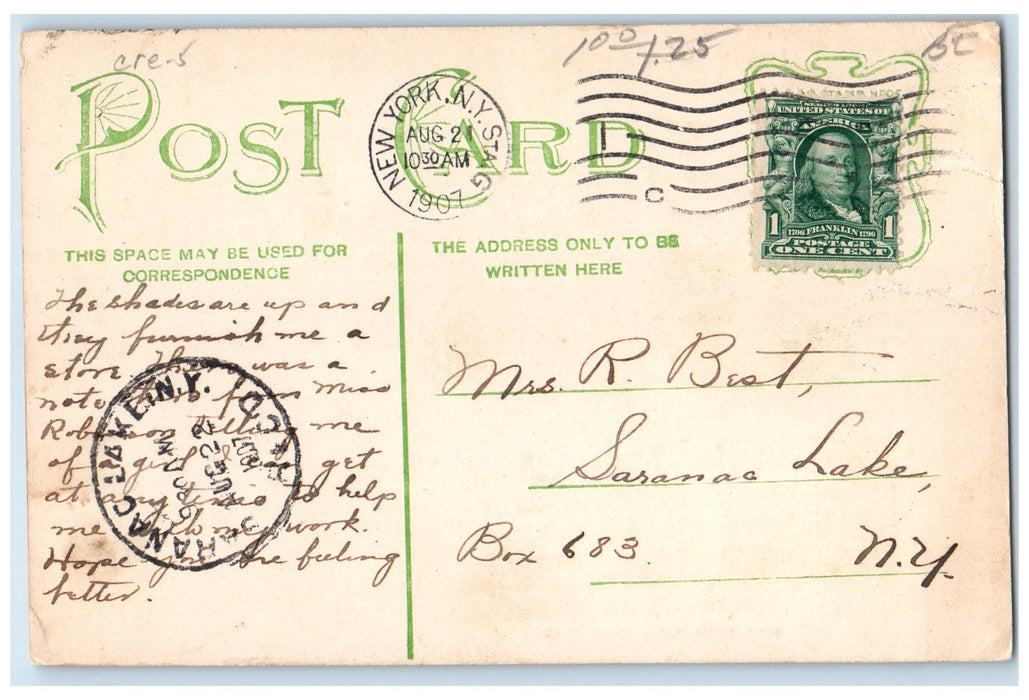 cre-5
1.00
1.25
POST CARD
NEW YORK, N.Y. STA. G
AUG 21
10 30 AM
1907
1
C
UNITED STATES OF
AMERICA
1 1706 FRANKLIN 1790 1
POSTAGE
ONE CENT
THIS SPACE MAY BE USED FOR
CORRESPONDENCE
THE ADDRESS ONLY TO BE
WRITTEN HERE
The shades are up and
they furnish me a
store. There was a
note from Miss
Robinson telling me
of a girl I get
at any time to help
me with my work.
Hope you are feeling
better.
SARANAC LAKE, N.Y. REC'D
AUG 22
1907
Mrs. R. Best,
Saranac Lake,
Box 683. N.Y.